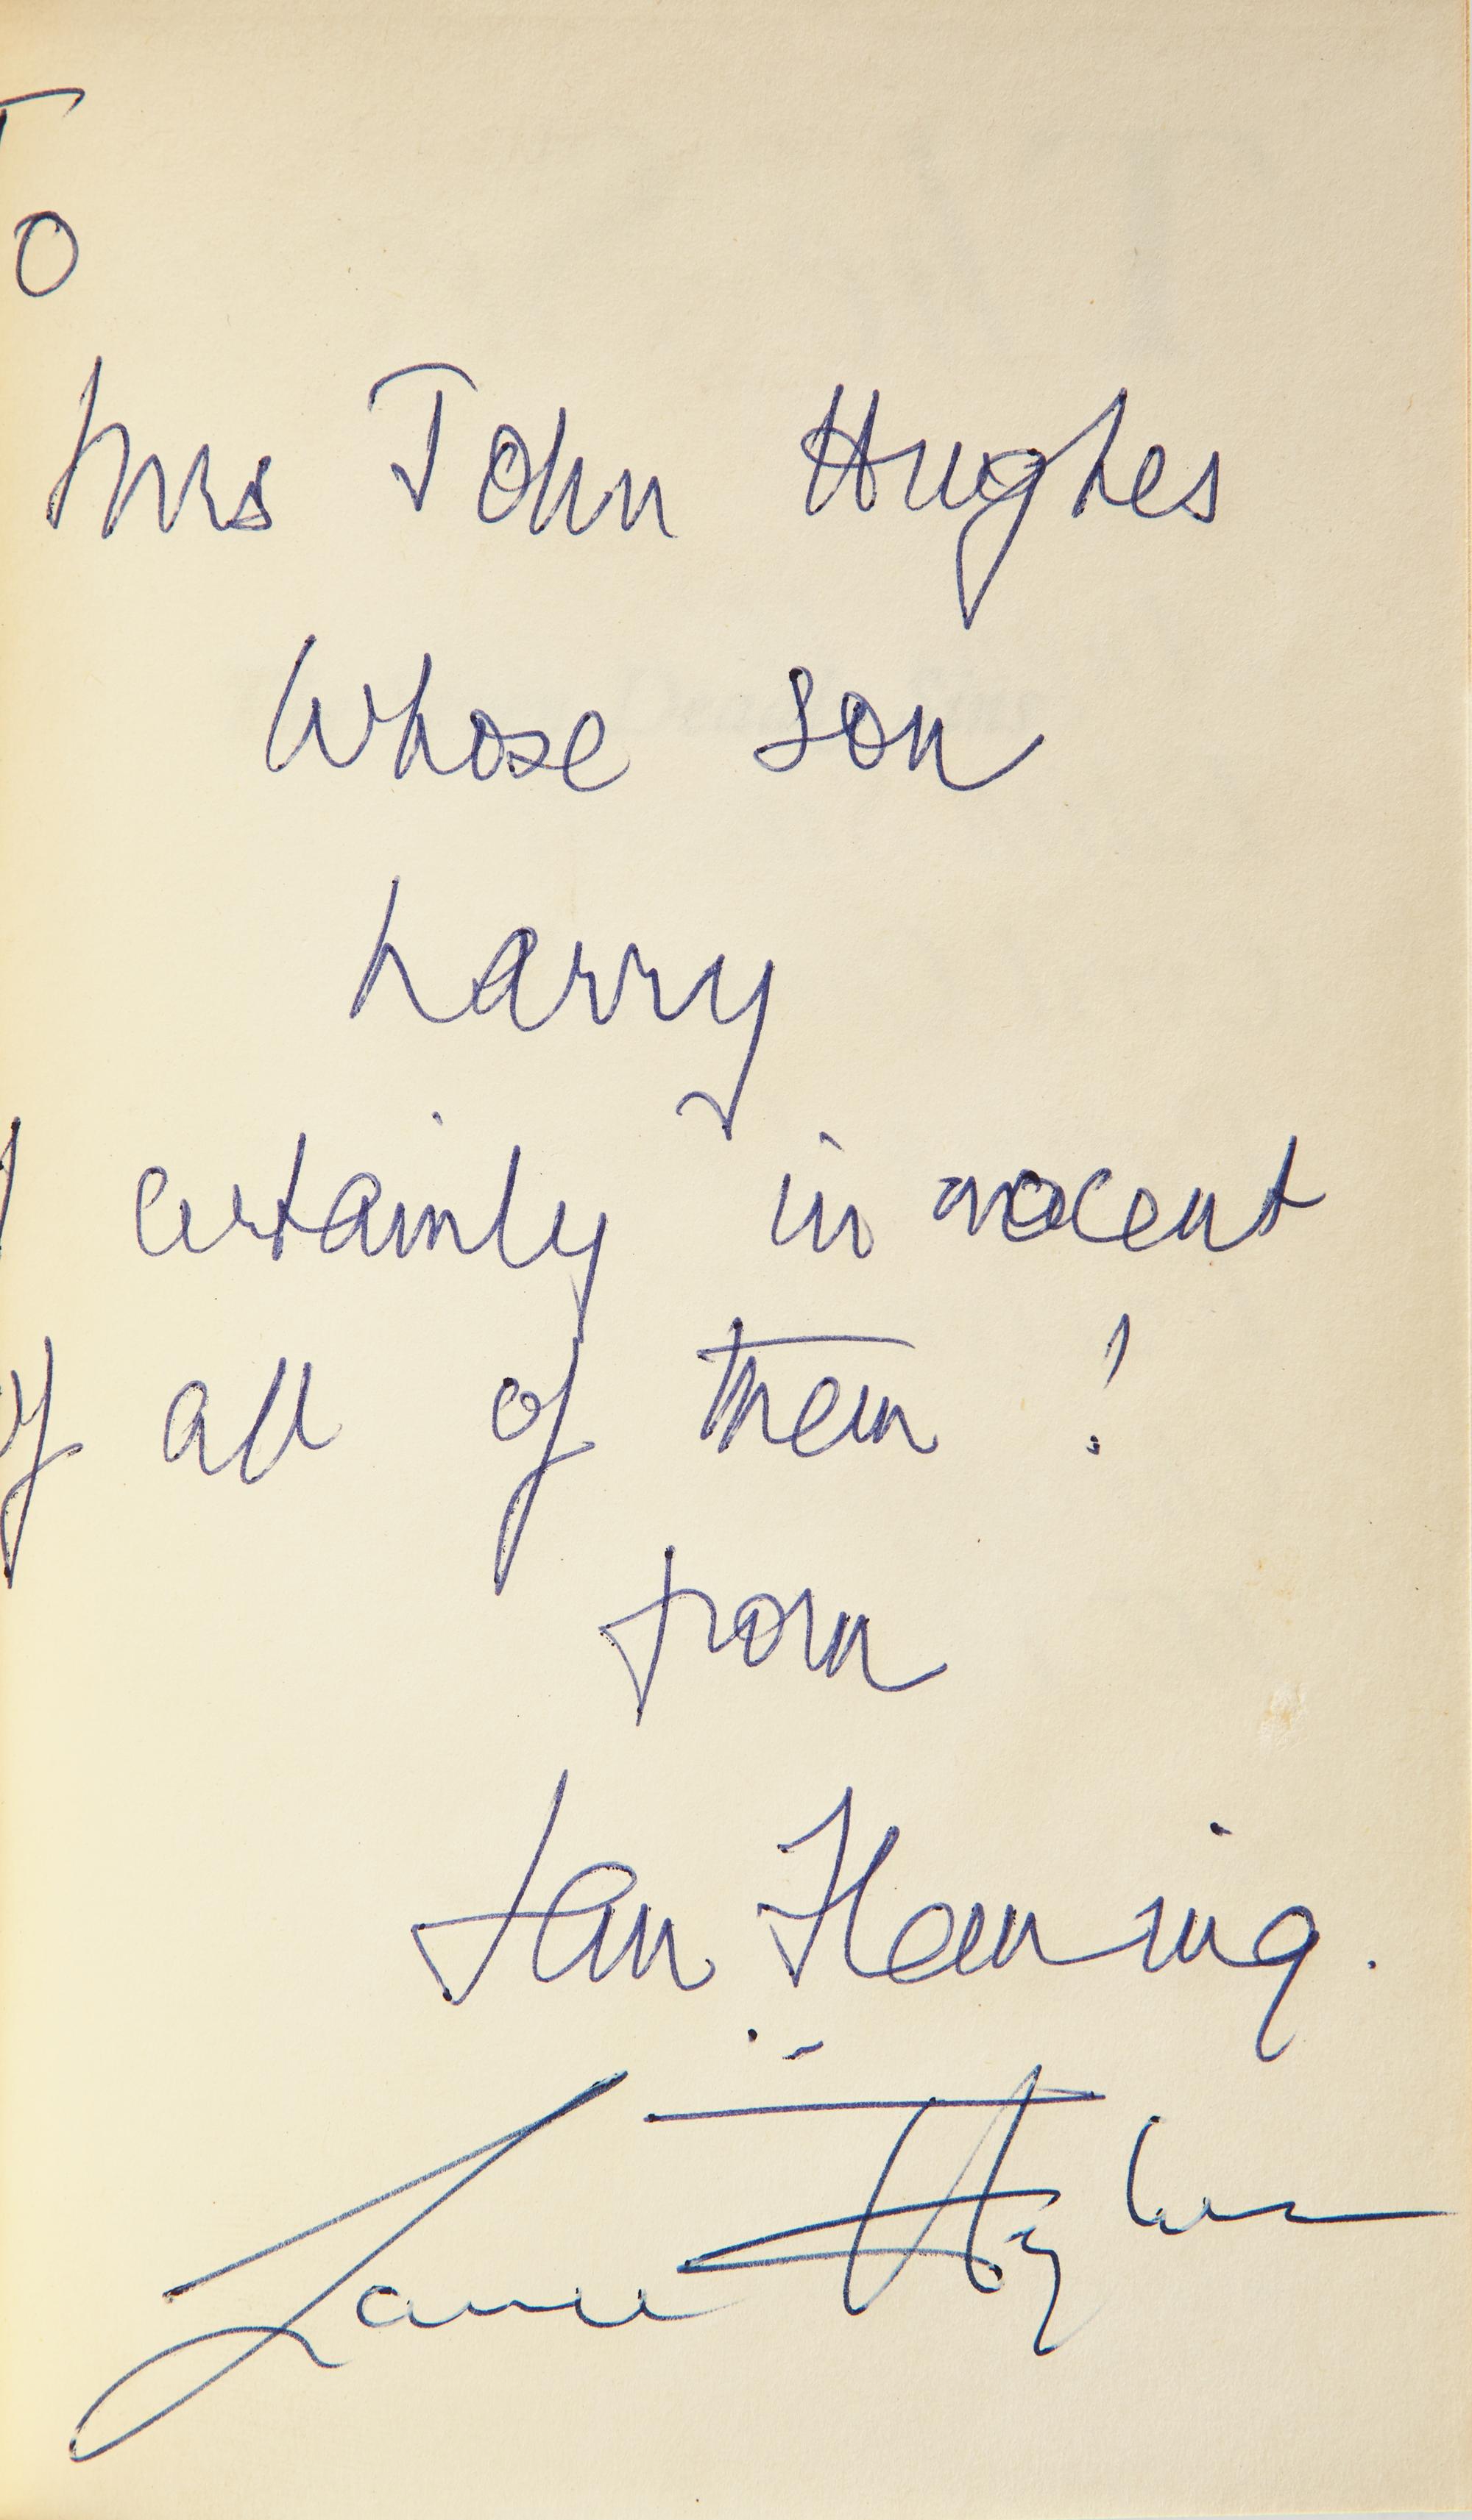 T
o
Mrs John Hughes
Whose son
Larry
certainly innocent
of all of them !
from
Ian Fleming.
Hughes